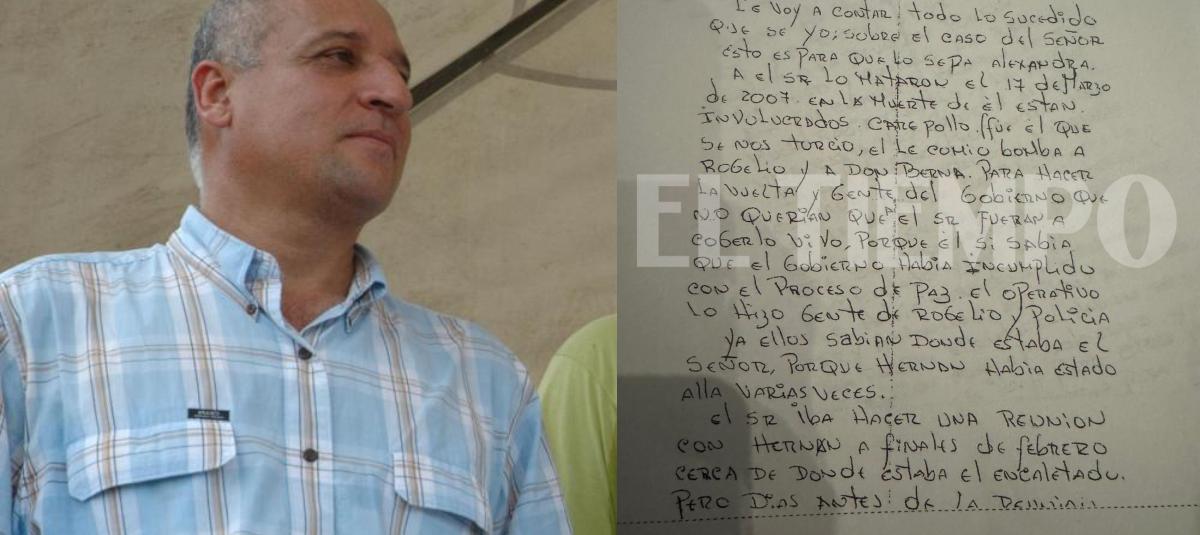 LE VOY A CONTAR todo LO SUCEDIDO
QUE SE YO, SOBRE EL CASO dEL SEÑOR
ESTO ES PARA QUE LO SEPA ALEXANDRA.
A EL SR LO MATARON EL 17 de MARZO
de 2007. EN LA MUERTE de ÉL ESTAN
INVULUCRADOS. CARE POLLO. fUE EL QUE
SE NOS TORCIO, EL LE COMIO bOMbA A
ROGELIO Y A DON BERNA. PARA HACER
LA VUELTA Y GENTE dEL GObiERNO QUE
NO QUERIAN QUE A EL SR FUERAN A
COGERLO VIVO, PORQUE EL SI SAbIA
QUE EL GObiERNO HAbiA INCUMPLIDO
CON EL PROCESO dE PAZ. EL OPERATIVO
LO HIZO GENTE dE ROGELIO Y POLICIA
YA ELLOS SAbIAN DONDE ESTAbA EL
SEÑOR, PORQUE HERNAN HAbiA ESTADO
ALLA VARIAS VECES.
EL SR IbA HACER UNA REUNION
CON HERNAN A fiNALES dE fEbRERO
CERCA DE DONDE ESTAbA EL ENCALETADO.
PERO DIAS ANTES dE LA REUNION
EL TIEMPO